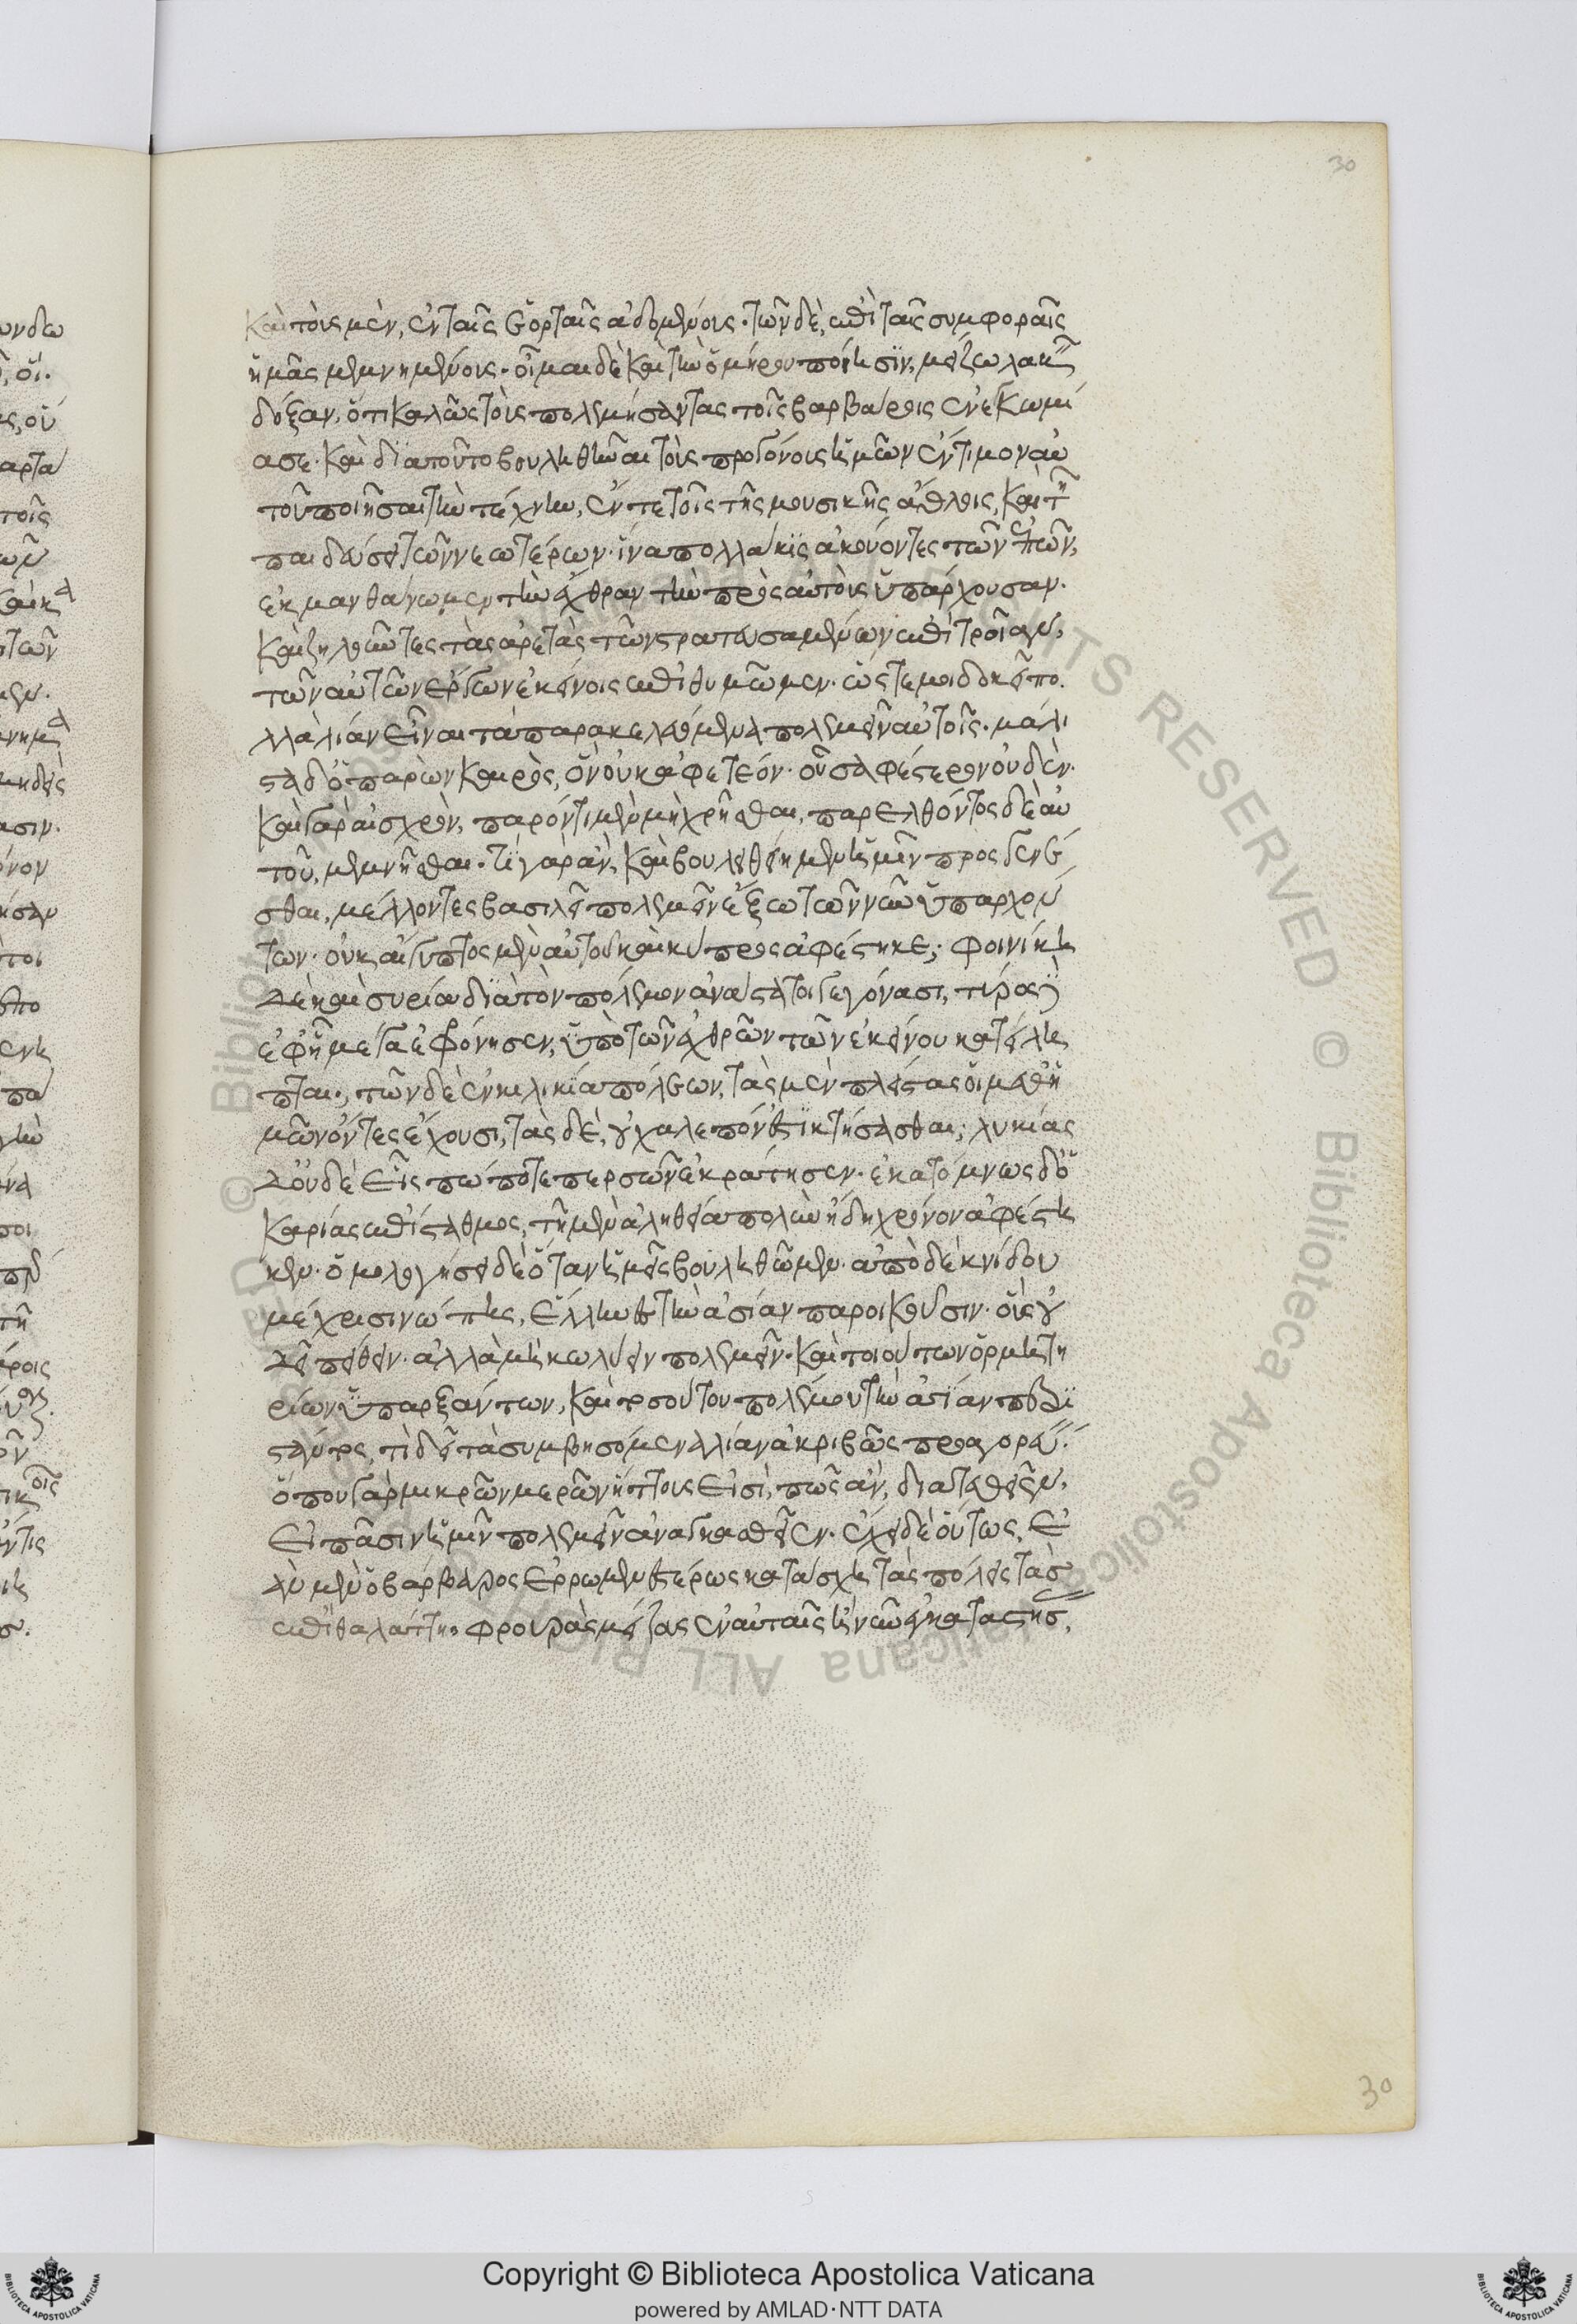 30
καὶ τοὺς μὲν, ἐν ταῖς ἑορταῖς ἀδομένους· τῶν δὲ, ἐπὶ ταῖς συμφοραῖς
ἡμᾶς μεμνημένους· οἶμαι δὲ καὶ τὴν ὁμήρου ποίησιν, μείζω λαβεῖν
δόξαν, ὅτι καλῶς τοὺς πολεμήσαντας τοῖς βαρβάροις ἐνεκωμί
ασε· καὶ διὰ τοῦτο βουληθῆναι τοὺς προγόνους ἡμῶν ἔντιμον αὐ
τοῦ ποιῆσαι τὴν τέχνην, ἔν τε τοῖς τῆς μουσικῆς ἄθλοις, καὶ τῆ
παιδεύσει τῶν νεωτέρων· ἵνα πολλάκις ἀκούοντες τῶν ἐπῶν,
ἐκμανθάνωμεν τὴν ἔχθραν τὴν πρὸς αὐτοὺς ὑπάρχουσαν·
καὶ ζηλοῦντες τὰς ἀρετὰς τῶν στρατευσαμένων ἐπὶ τροίαν,
τῶν αὐτῶν ἔργων ἐκείνοις ἐπιθυμῶμεν· ὥστε μοι δοκεῖ πο
λλὰ λίαν εἶναι τὰ παρακελευόμενα πολεμεῖν αὐτοῖς· μάλι
στα δ' ὁ παρὼν καιρὸς, ὃν οὐκ ἀφετέον· οὗ σαφέστερον οὐδὲν·
καὶ γὰρ αἰσχρὸν, παρόντι μὲν μὴ χρῆσθαι, παρελθόντος δὲ αὐ
τοῦ, μεμνῆσθαι· τί γὰρ ἂν, καὶ βουληθείημεν ἡμῖν προσγενέ
σθαι, μέλλοντες βασιλεῖ πολεμεῖν ἔξω τῶν νῦν ὑπαρχόν
των· οὐκ αἴγυπτος μὲν αὐτοῦ καὶ κύπρος ἀφέστηκε; φοινίκη
δὲ καὶ συρία διὰ τὸν πόλεμον ἀνάστατοι γεγόνασι, τύρος δ'
ἐφ' ᾗ μέγα ἐφρόνησεν, ὑπὸ τῶν ἐχθρῶν τῶν ἐκείνου κατείλη
πται· τῶν δὲ ἐν κιλικία πόλεων, τὰς μὲν πλείστας οἱ μεθ' ἡ
μῶν ὄντες ἔχουσι, τὰς δὲ, οὐ χαλεπόν ἐστι κτήσασθαι; λυκίας
δ' οὐδὲ εἷς πώποτε περσῶν ἐκράτησεν· ἑκατόμνως δ' ὁ
καρίας ἐπίσταθμος, τῆ μὲν ἀληθεία πολὺν ἤδη χρόνον ἀφέστη
κεν· ὁμολογήσει δὲ ὅταν ἡμεῖς βουληθῶμεν· ἀπὸ δὲ κνίδου
μέχρι σινώπης, ἕλληνες τὴν ἀσίαν παροικοῦσιν· οὓς οὐ
δεῖ πείθειν· ἀλλὰ μὴ κωλύειν πολεμεῖν· καὶ τοιούτων ὁρμητη
ρίων ὑπαρξάντων, καὶ τοσούτου πολέμου τὴν ἀσίαν περι
στάντος, τί δεῖ τὰ συμβησόμενα λίαν ἀκριβῶς προαγορεύειν·
ὅπου γὰρ μικρῶν μερῶν ἥττους εἰσὶ, πῶς ἂν, διατεθεῖεν,
εἰ πᾶσιν ἡμῖν πολεμεῖν ἀναγκασθεῖεν· ἔχει δὲ οὕτως, ἐ
ὰν μὲν ὁ βάρβαρος ἐρρωμενεστέρως κατάσχη τὰς πόλεις τὰς
ἐπὶ θαλάττη· φρουρὰς μείζους ἐν αὐταῖς ἢ νῦν ἐγκαταστήσ
30
© Biblioteca Apostolica Vaticana ALL RIGHTS RESERVED
Copyright © Biblioteca Apostolica Vaticana
powered by AMLAD·NTT DATA